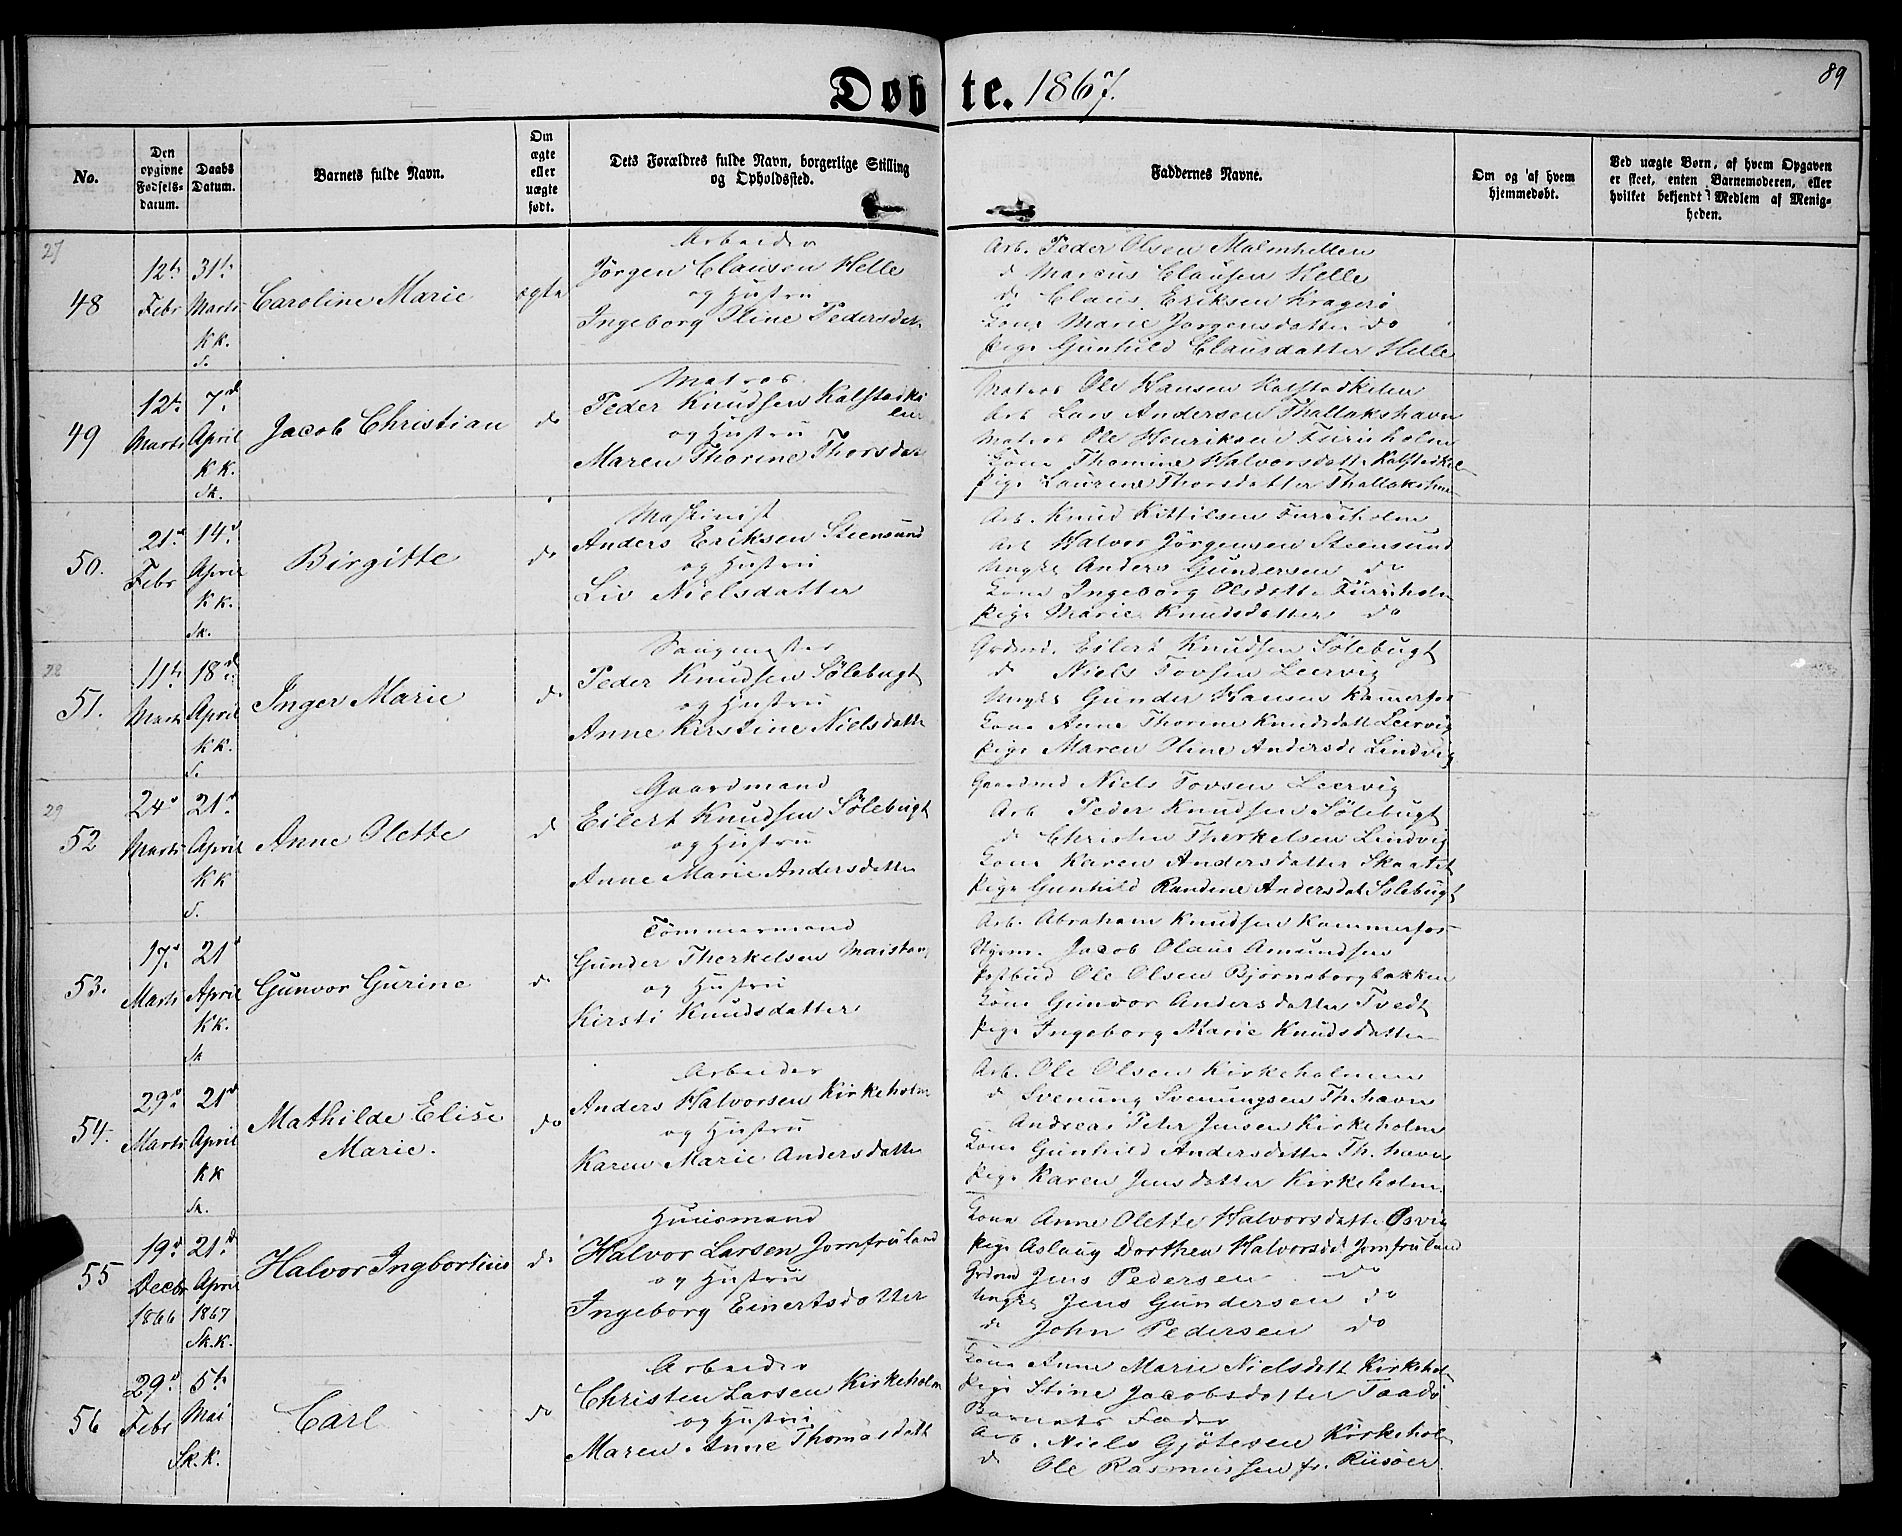 Døbte. 1867.
89
No.
Den opgivne Fødselsdatum.
Daabs Datum.
Barnets fulde Navn.
Om ægte eller uægte født.
Dets Forældres fulde Navn, borgerlige Stilling og Opholdssted.
Faddernes Navne.
Om og af hvem hjemmedøbt.
Ved uægte Børn, af hvem Opgaven er skeet, enten Barnemoderen, eller hvilket bekjendt Medlem af Menigheden.
27
48
12te Febr
31te Marts
KK.
S.
Caroline Marie
ægte
Arbeider
Jörgen Clausen Helle
og Hustru
Ingeborg Oline Pedersdatt
Arb. Peder Olsen Malmhellen
do Marcus Clausen Helle
do Claus Eriksen Kragerö
Kone Marie Jörgensdatter do
Pige Gunhild Clausdatter Helle
49
12te Marts
7d April
KK.
Sk.
Jacob Christian
do
Matros
Peder Knudsen Kalstadkilen
og Hustru
Maren Thorine Thorsdatt
Matros Ole Hansen Kalstadkilen
Arb Lars Andersen Thallakshavn
Matros Ole Henriksen Furuholm
Kone Thomine Halvorsdatt Kalstadkil
Pige Laurine Thorsdatter Thallakshavn
50.
21d Febr
14d April
KK.
Sk.
Birgitte
do
Maskinist
Anders Eriksen Steensund
og Hustru
Liv Nielsdatter
Arb. Knud Kittilsen Furuholm
Arb Halvor Jörgensen Steensund
Ungkl Anders Gundersen do
Kone Ingeborg Olsdatte Furuholm
Pige Marie Knudsdatter do
28
51.
11te Marts
18d April
KK.
S.
Inger Marie
do
Saugmester
Peder Knudsen Sölebugt
og Hustru
Anne Kirstine Nielsdatte
Grdmd. Eilert Knudsen Sölebugt
do Niels Tovsen Leervig
Ungkl Gunder Hansen Kamerfos
Kone Anne Thorine Knudsdatt Leervig
Pige Maren Oline Andersd. Lindvig
29
52
24d Marts
21d April
KK
S.
Anne Olette
do
Gaardmand
Eilert Knudsen Sölebugt
og Hustru
Anne Marie Andersdatter
Gaardmd Niels Tovsen Leervig
Arb Peder Knudsen Sölebugt
do Christen Therkelsen Lindvig
Kone Karen Andersdatter
Pige Gunhild Randine Andersdat Sölebugt
53.
17d Marts
21d April
KK.
Sk
Gunvor Gurine
do
Tömmermand
Gunder Therkelsen
og Hustru
Kirsti Knudsdatter
Arb. Abraham Knudsen Kammerfos
Jacob Olaus Amundsen
Postbud Ole Olsen Björneborgbakken
Kone Gunvor Andersdatter Tvedt
Pige Ingeborg Marie Knudsdatter
54.
29d Marts
21d April
KK
Sk.
Mathilde Elise
Marie.
do
Arbeider
Anders Halvorsen Kirkeholm
og Hustru
Karen Marie Andersdatter
Arb. Ole Olsen Kirkeholmen
do Svenung Svenungsen Th.havn
Andreas Peter Jensen Kirkeholm
Kone Gunhild Andersdatter Th.havn
Pige Karen Jensdatter Kirkeholm.
55
19d Decbr 1866
21d April 1867
Sk.K.
Halvor Ingbortius
do
Huusmand
Halvor Larsen Jomfruland
og Hustru
Ingeborg Einertsdatter
Kone Anne Olette Halvorsdatt
Pige Aslaug Dorthea Halvorsd. Jomfruland
Grdmd Jens Pedersen do
Ungkl Jens Gundersen do
do John Pedersen do
56
29d Febr
5te Mai
Sk.K.
Carl
do
Arbeider
Christen Larsen Kirkeholm
og Hustru
Maren Anne Thomasdatt
Kone Anne Marie Nielsdatt Kirkehol
Pige Stine Jacobsdatter Taadö
Barnets Fader
Arb. Niels Gjöteren Kirkehol
do Ole Rasmussen fr. Riisöer